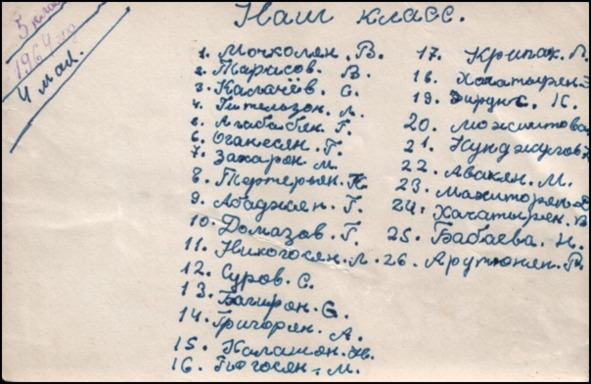 5 кла
1964 год
4 мая.
Наш класс.
1. Мочколян. В.
2. Тарасов. В.
3. Калачёв. С.
4. Гительзон. Л.
5. Агабабян. Г.
6. Оганесян. Г.
7. Захарон. М.
8. Тертерьян. К.
9. Абаджян. Г.
10. Домазов. Г.
11. Никогосян. Л.
12. Суров. С.
13. Багирян. С.
14. Григорян. А.
15. Калашян.
16. Погосян. М.
17. Крипак. Л.
18. Хачатырян.
19. К.
20.
21.
22. Авакян. М.
23.
24. Хачатырян. В
25. Бабаева. Н.
26. Арутюнян. Р.